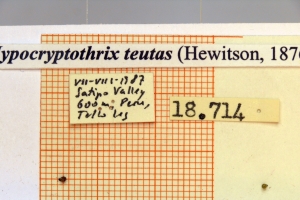 ypocryptothrix teutas (Hewitson, 187
VII-VIII-1987
Satipo Valley
600m, Peru,
Tello leg
18.714